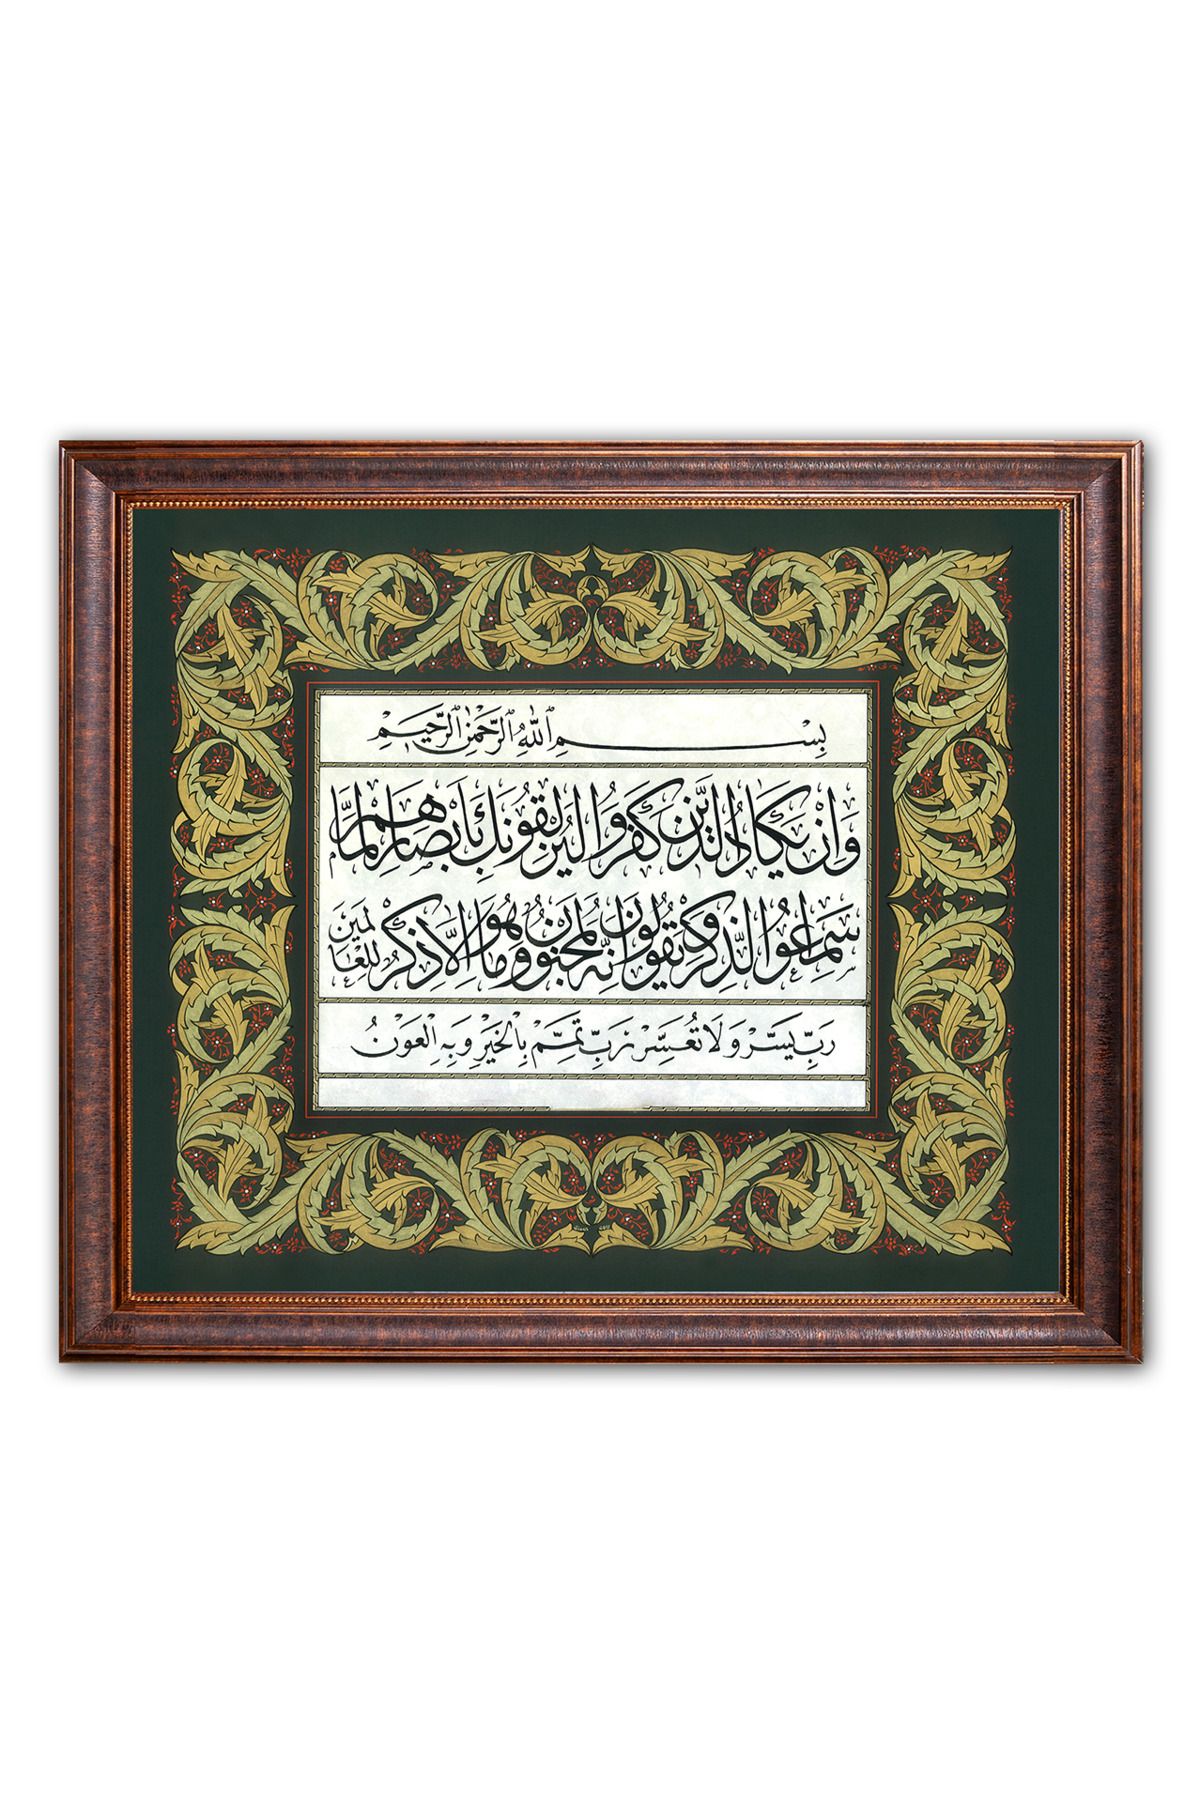 بِسْمِ اللّٰهِ الرَّحْمٰنِ الرَّحِيمِ
وَاِنْ يَكَادُ الَّذِينَ كَفَرُوا لَيُزْلِقُونَكَ بِاَبْصَارِهِمْ لَمَّا
سَمِعُوا الذِّكْرَ وَيَقُولُونَ اِنَّهُ لَمَجْنُونٌ وَمَا هُوَ اِلَّا ذِكْرٌ لِلْعَالَمِينَ
رَبِّ يَسِّرْ وَلَا تُعَسِّرْ رَبِّ تَمِّمْ بِالْخَيْرِ وَبِهِ الْعَوْنُ